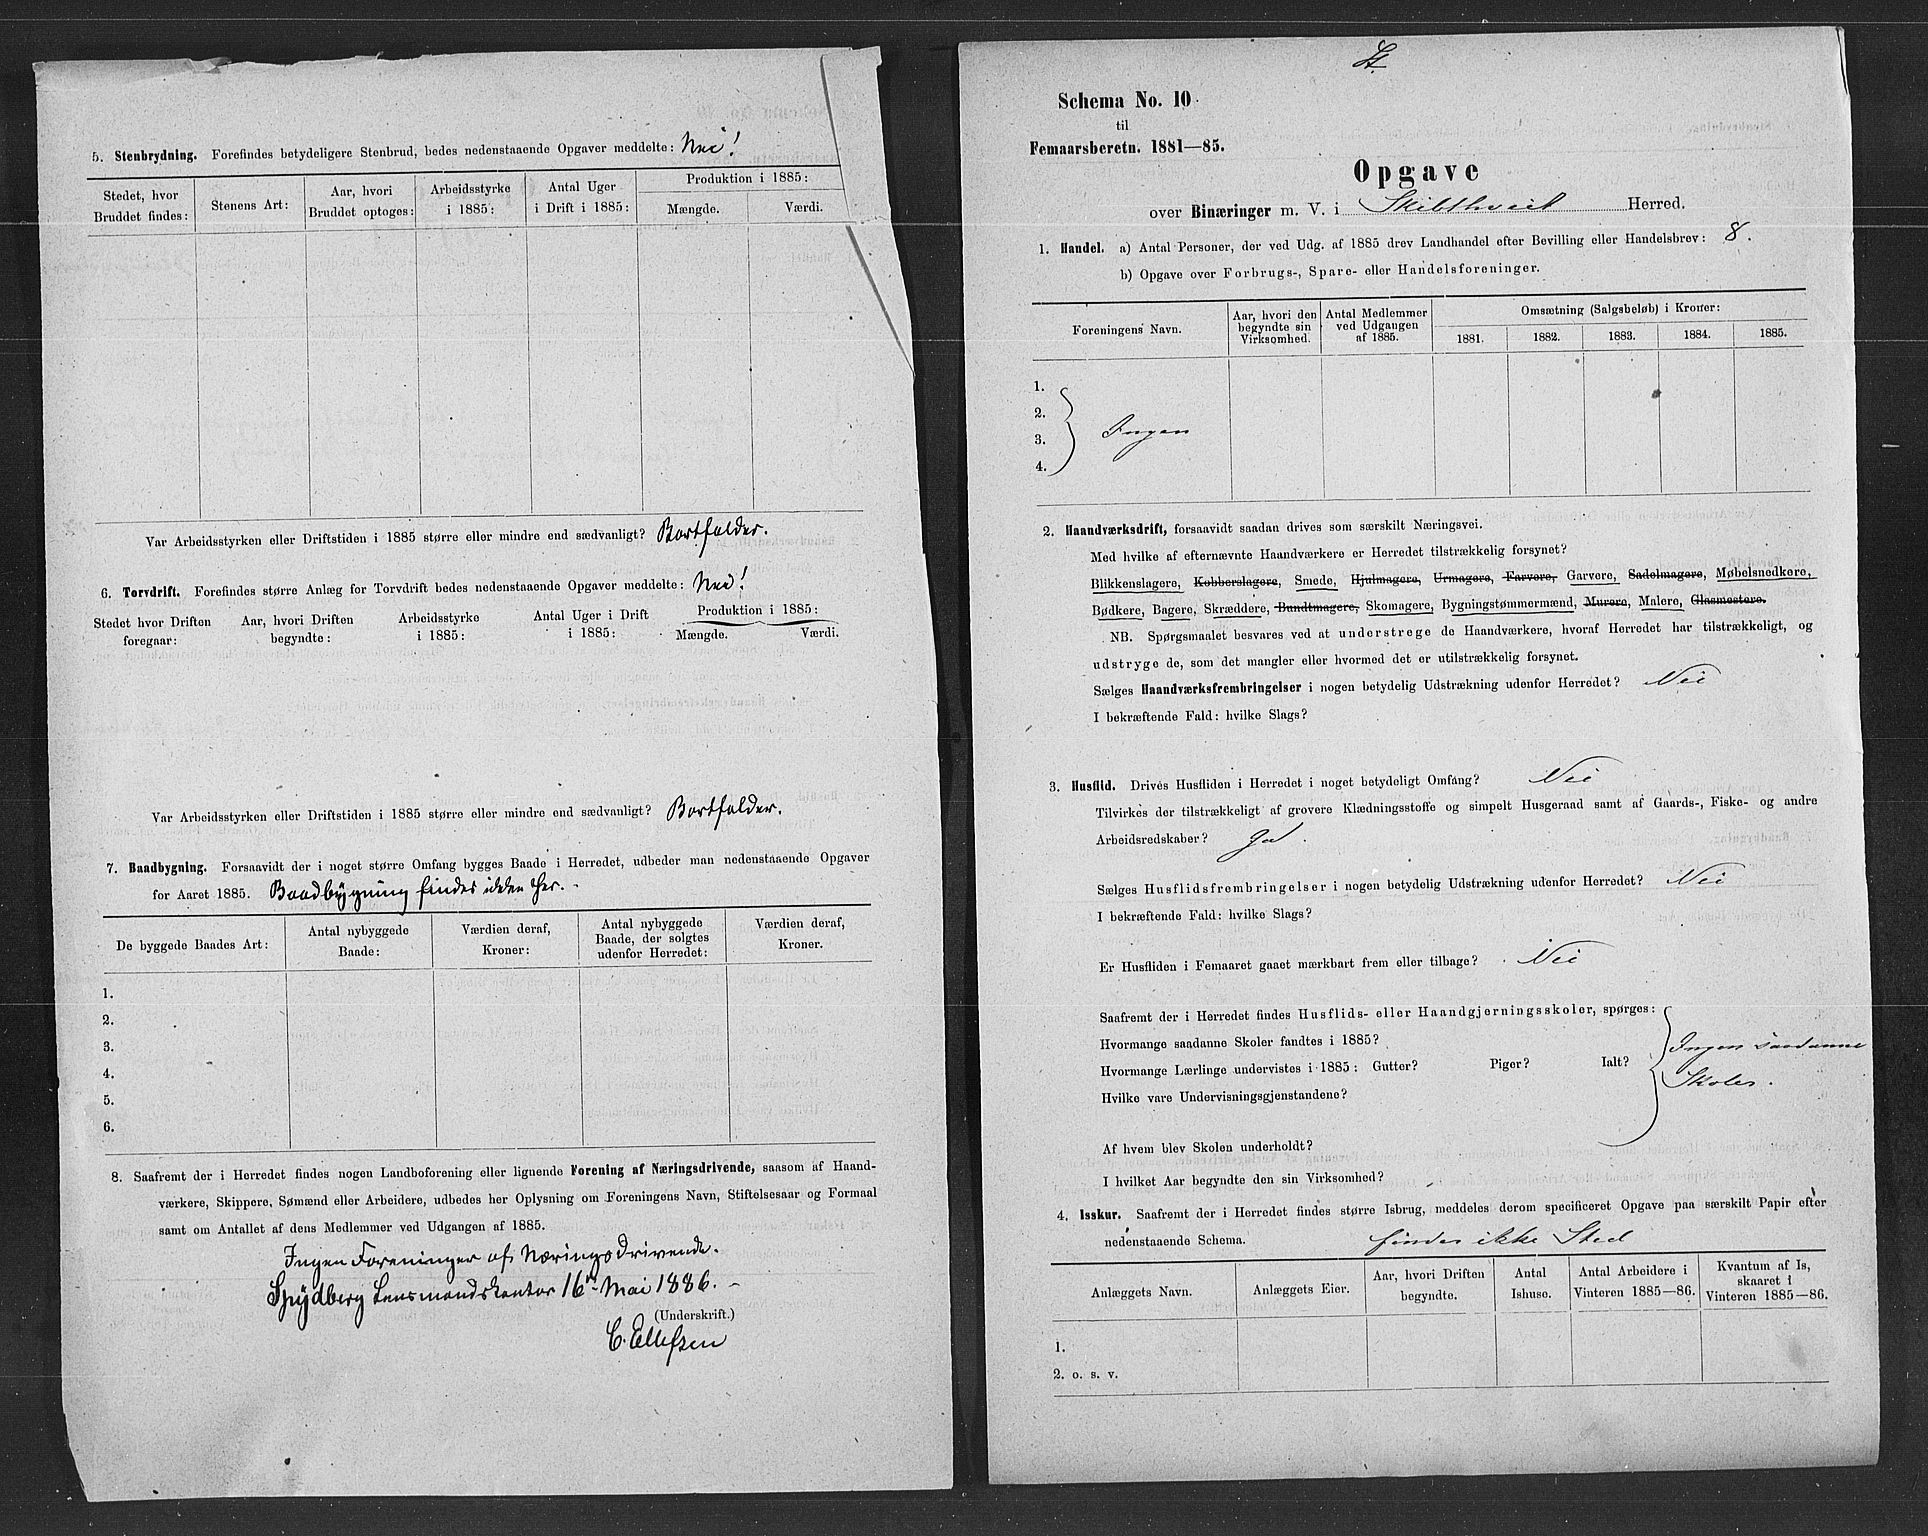 5. Stenbrydning. Forefindes betydeligere Stenbrud, bedes nedenstaaende Opgaver meddelte: Nei!
Stedet, hvor Bruddet findes: Stenens Art: Aar, hvori Bruddet optoges: Arbeidsstyrke i 1885: Antal Uger i Drift i 1885: Produktion i 1885: Mængde. Værdi.
Var Arbeidsstyrken eller Driftstiden i 1885 større eller mindre end sædvanligt? Bortfalder.
6. Torvdrift. Forefindes større Anlæg for Torvdrift bedes nedenstaaende Opgaver meddelte: Nei!
Stedet hvor Driften foregaar: Aar, hvori Driften begyndte: Arbeidsstyrke i 1885: Antal Uger i Drift i 1885: Produktion i 1885: Mængde. Værdi.
Var Arbeidsstyrken eller Driftstiden i 1885 større eller mindre end sædvanligt? Bortfalder.
7. Baadbygning. Forsaavidt der i noget større Omfang bygges Baade i Herredet, udbeder man nedenstaaende Opgaver
for Aaret 1885. Baadbygning findes ikken her.
De byggede Baades Art: Antal nybyggede Baade: Værdien deraf, Kroner: Antal nybyggede Baade, der solgtes udenfor Herredet: Værdien deraf, Kroner.
1.
2.
3.
4.
5.
6.
8. Saafremt der i Herredet findes nogen Landboforening eller lignende Forening af Næringsdrivende, saasom af Haand-
værkere, Skippere, Sømænd eller Arbeidere, udbedes her Oplysning om Foreningens Navn, Stiftelsesaar og Formaal
samt om Antallet af dens Medlemmer ved Udgangen af 1885.
Ingen Foreninger af Næringsdrivende.
Spydberg Lensmandskontor 16de Mai 1886.
(Underskrift.)
C. Ellefsen
Schema No. 10
til
Femaarsberetn. 1881—85.
Opgave
over Binæringer m. V. i Skibthveit Herred.
1. Handel. a) Antal Personer, der ved Udg. af 1885 drev Landhandel efter Bevilling eller Handelsbrev: 8.
b) Opgave over Forbrugs-, Spare- eller Handelsforeninger.
Foreningens Navn. Aar, hvori den begyndte sin Virksomhed. Antal Medlemmer ved Udgangen af 1885. Omsætning (Salgsbeløb) i Kroner: 1881. 1882. 1883. 1884. 1885.
1.
2.
3. Ingen
4.
2. Haandværksdrift, forsaavidt saadan drives som særskilt Næringsvei.
Med hvilke af efternævnte Haandværkere er Herredet tilstrækkelig forsynet?
Blikkenslagere, Kobberslagere, Smede, Hjulmagere, Urmagere, Farvere, Garvere, Sadelmagere, Møbelsnedkere,
Bødkere, Bagere, Skræddere, Bundtmagere, Skomagere, Bygningstømmermænd, Murere, Malere, Glasmestere.
NB. Spørgsmaalet besvares ved at understrege de Haandværkere, hvoraf Herredet har tilstrækkeligt, og
udstryge de, som det mangler eller hvormed det er utilstrækkelig forsynet.
Sælges Haandværksfrembringelser i nogen betydelig Udstrækning udenfor Herredet? Nei
I bekræftende Fald: hvilke Slags?
3. Husflid. Drives Husfliden i Herredet i noget betydeligt Omfang? Nei
Tilvirkes der tilstrækkeligt af grovere Klædningsstoffe og simpelt Husgeraad samt af Gaards-, Fiske- og andre
Arbeidsredskaber? Ja.
Sælges Husflidsfrembringelser i nogen betydelig Udstrækning udenfor Herredet? Nei
I bekræftende Fald: hvilke Slags?
Er Husfliden i Femaaret gaaet mærkbart frem eller tilbage? Nei
Saafremt der i Herredet findes Husflids- eller Haandgjerningsskoler, spørges:
Hvormange saadanne Skoler fandtes i 1885? Ingen saadanne
Hvormange Lærlinge undervistes i 1885: Gutter? Piger? Ialt? Skoler.
Hvilke vare Undervisningsgjenstandene?
Af hvem blev Skolen underholdt?
I hvilket Aar begyndte den sin Virksomhed?
4. Isskur. Saafremt der i Herredet findes større Isbrug, meddeles derom specificeret Opgave paa særskilt Papir efter
nedenstaaende Schema. finder ikke Sted
Anlæggets Navn. Anlæggets Eier. Aar, hvori Driften begyndte. Antal Ishuse. Antal Arbeidere i Vinteren 1885—86. Kvantum af Is, skaaret i Vinteren 1885—86.
1.
2. o. s. v.